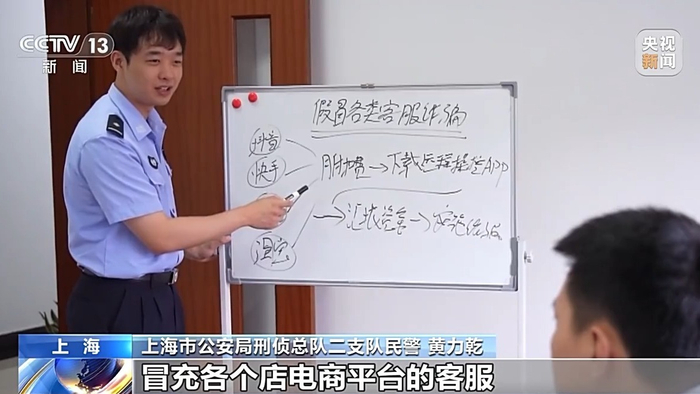 CCTV 13
新闻
央视
新闻
假冒各类客服诈骗
抖音
快手
淘宝
关播 → 下载远程操控APP
→ 汇拢资金 → 实施诈骗
上海
上海市公安局刑侦总队二支队民警 黄力乾
冒充各个店电商平台的客服